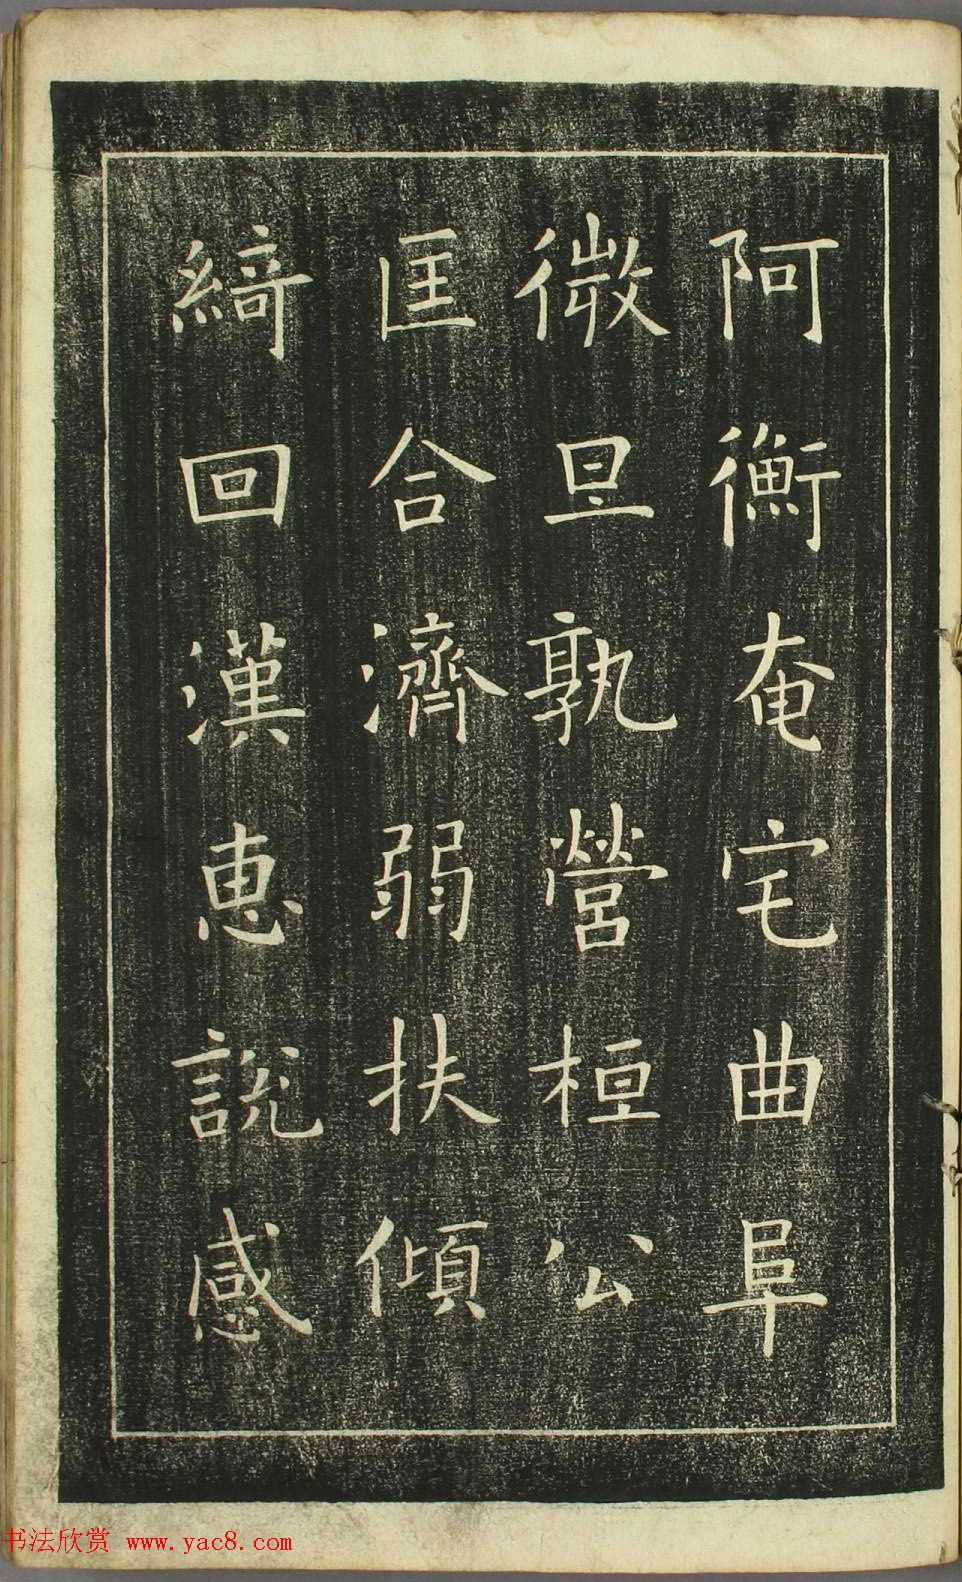 阿衡奄宅曲阜
微旦孰營桓公
匡合濟弱扶傾
綺回漢恵說感
书法欣赏 www.yac8.com